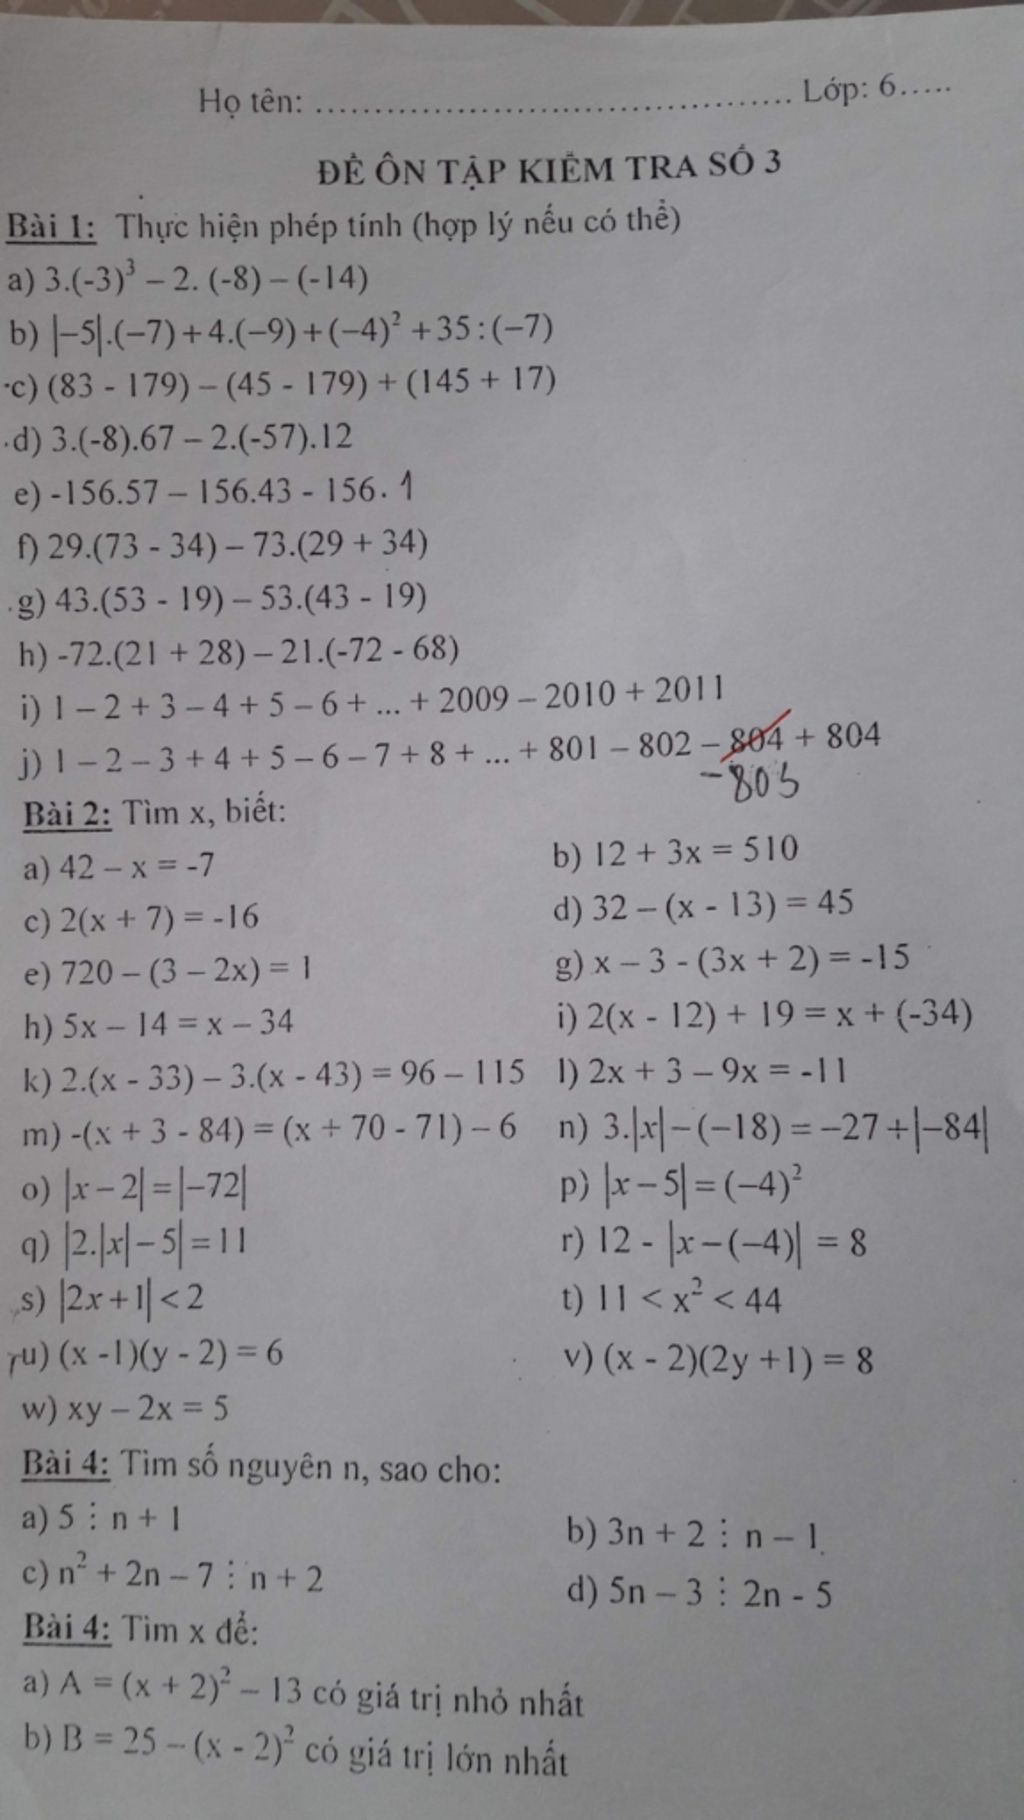 Họ tên: ........................................ Lớp: 6.....
ĐỀ ÔN TẬP KIỂM TRA SỐ 3
Bài 1: Thực hiện phép tính (hợp lý nếu có thể)
a) 3.(-3)³ – 2. (-8) – (-14)
b) |−5|.(−7)+4.(−9)+(−4)² +35:(−7)
c) (83 - 179) – (45 - 179) + (145 + 17)
d) 3.(-8).67 – 2.(-57).12
e) -156.57 – 156.43 - 156. 1
f) 29.(73 - 34) – 73.(29 + 34)
g) 43.(53 - 19) – 53.(43 - 19)
h) -72.(21 + 28) – 21.(-72 - 68)
i) 1 – 2 + 3 – 4 + 5 – 6 + ... + 2009 – 2010 + 2011
j) 1 – 2 – 3 + 4 + 5 – 6 – 7 + 8 + ... + 801 – 802 – 804 + 804
-803
Bài 2: Tìm x, biết:
a) 42 – x = -7 b) 12 + 3x = 510
c) 2(x + 7) = -16 d) 32 – (x - 13) = 45
e) 720 – (3 – 2x) = 1 g) x – 3 - (3x + 2) = -15
h) 5x – 14 = x – 34 i) 2(x - 12) + 19 = x + (-34)
k) 2.(x - 33) – 3.(x - 43) = 96 – 115 l) 2x + 3 – 9x = -11
m) -(x + 3 - 84) = (x + 70 - 71) – 6 n) 3.|x|−(−18) = −27+|−84|
o) |x−2|=|−72| p) |x−5|=(−4)²
q) |2.|x|−5|=11 r) 12 - |x−(−4)| = 8
s) |2x+1|<2 t) 11 < x² < 44
u) (x -1)(y - 2) = 6 v) (x - 2)(2y +1) = 8
w) xy – 2x = 5
Bài 4: Tìm số nguyên n, sao cho:
a) 5 ⋮ n + 1 b) 3n + 2 ⋮ n – 1
c) n² + 2n – 7 ⋮ n + 2 d) 5n – 3 ⋮ 2n - 5
Bài 4: Tìm x để:
a) A = (x + 2)² – 13 có giá trị nhỏ nhất
b) B = 25 – (x - 2)² có giá trị lớn nhất